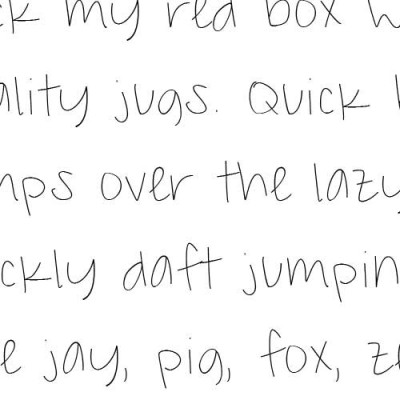 ck my red box w
ality jugs. Quick
mps over the lazy
ckly daft jumpin
e jay, pig, fox, ze